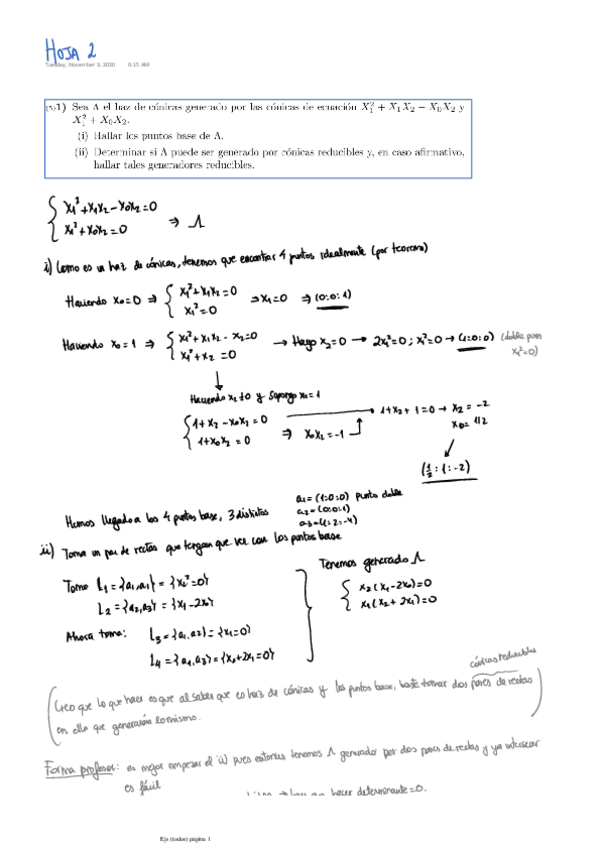 HOJA 2
Tuesday, November 3, 2020 8:15 AM
1) Sea Λ el haz de cónicas generado por las cónicas de ecuación X₁² + X₁X₂ − X₀X₂ y
X₁² + X₀X₂.
(i) Hallar los puntos base de Λ.
(ii) Determinar si Λ puede ser generado por cónicas reducibles y, en caso afirmativo,
hallar tales generadores reducibles.
{ x₁² + x₁x₂ - x₀x₂ = 0
x₁² + x₀x₂ = 0 ⇒ Λ
i) Como es un haz de cónicas, tenemos que encontrar 4 puntos idealmente (por teorema)
Haciendo x₀=0 ⇒ { x₁² + x₁x₂ = 0
x₁² = 0 ⇒ x₁=0 ⇒ (0:0:1)
Haciendo x₀=1 ⇒ { x₁² + x₁x₂ - x₂ = 0
x₁² + x₂ = 0 → Hago x₂=0 → 2x₁²=0; x₁²=0 → (1:0:0) (doble pues
x₁²=0)
Haciendo x₂≠0 y supongo x₁=1
{ 1 + x₂ - x₀x₂ = 0
1 + x₀x₂ = 0 ⇒ x₀x₂ = -1 1 + x₂ + 1 = 0 → x₂ = -2
x₀ = 1/2
(1/2 : 1 : -2)
Hemos llegado a los 4 puntos base, 3 distintos
a₁ = (1:0:0) punto doble
a₂ = (0:0:1)
a₃ = (1:2:-4)
ii) Toma un par de rectas que tengan que ver con los puntos base
Tenemos generado Λ
Tomo L₁ = {a₁,a₁} =
L₂ = {a₂,a₃} = {x₁-2x₀}
{ x₂(x₁-2x₀)=0
x₁(x₂+2x₁)=0
Ahora toma: L₃ = {a₁,a₂} = {x₁=0}
L₄ = {a₁,a₃} = {x₂+2x₁=0}
cónicas reducibles
(Creo que lo que hace es que al saber que es haz de cónicas y los puntos base, basta tomar dos pares de rectas
en ella que generarán lo mismo.)
Forma profesor: es mejor empezar el ii) pues entonces tenemos Λ generado por dos pares de rectas y ya intersecar
es fácil
hacer determinante=0.
Eje (todos) página 1